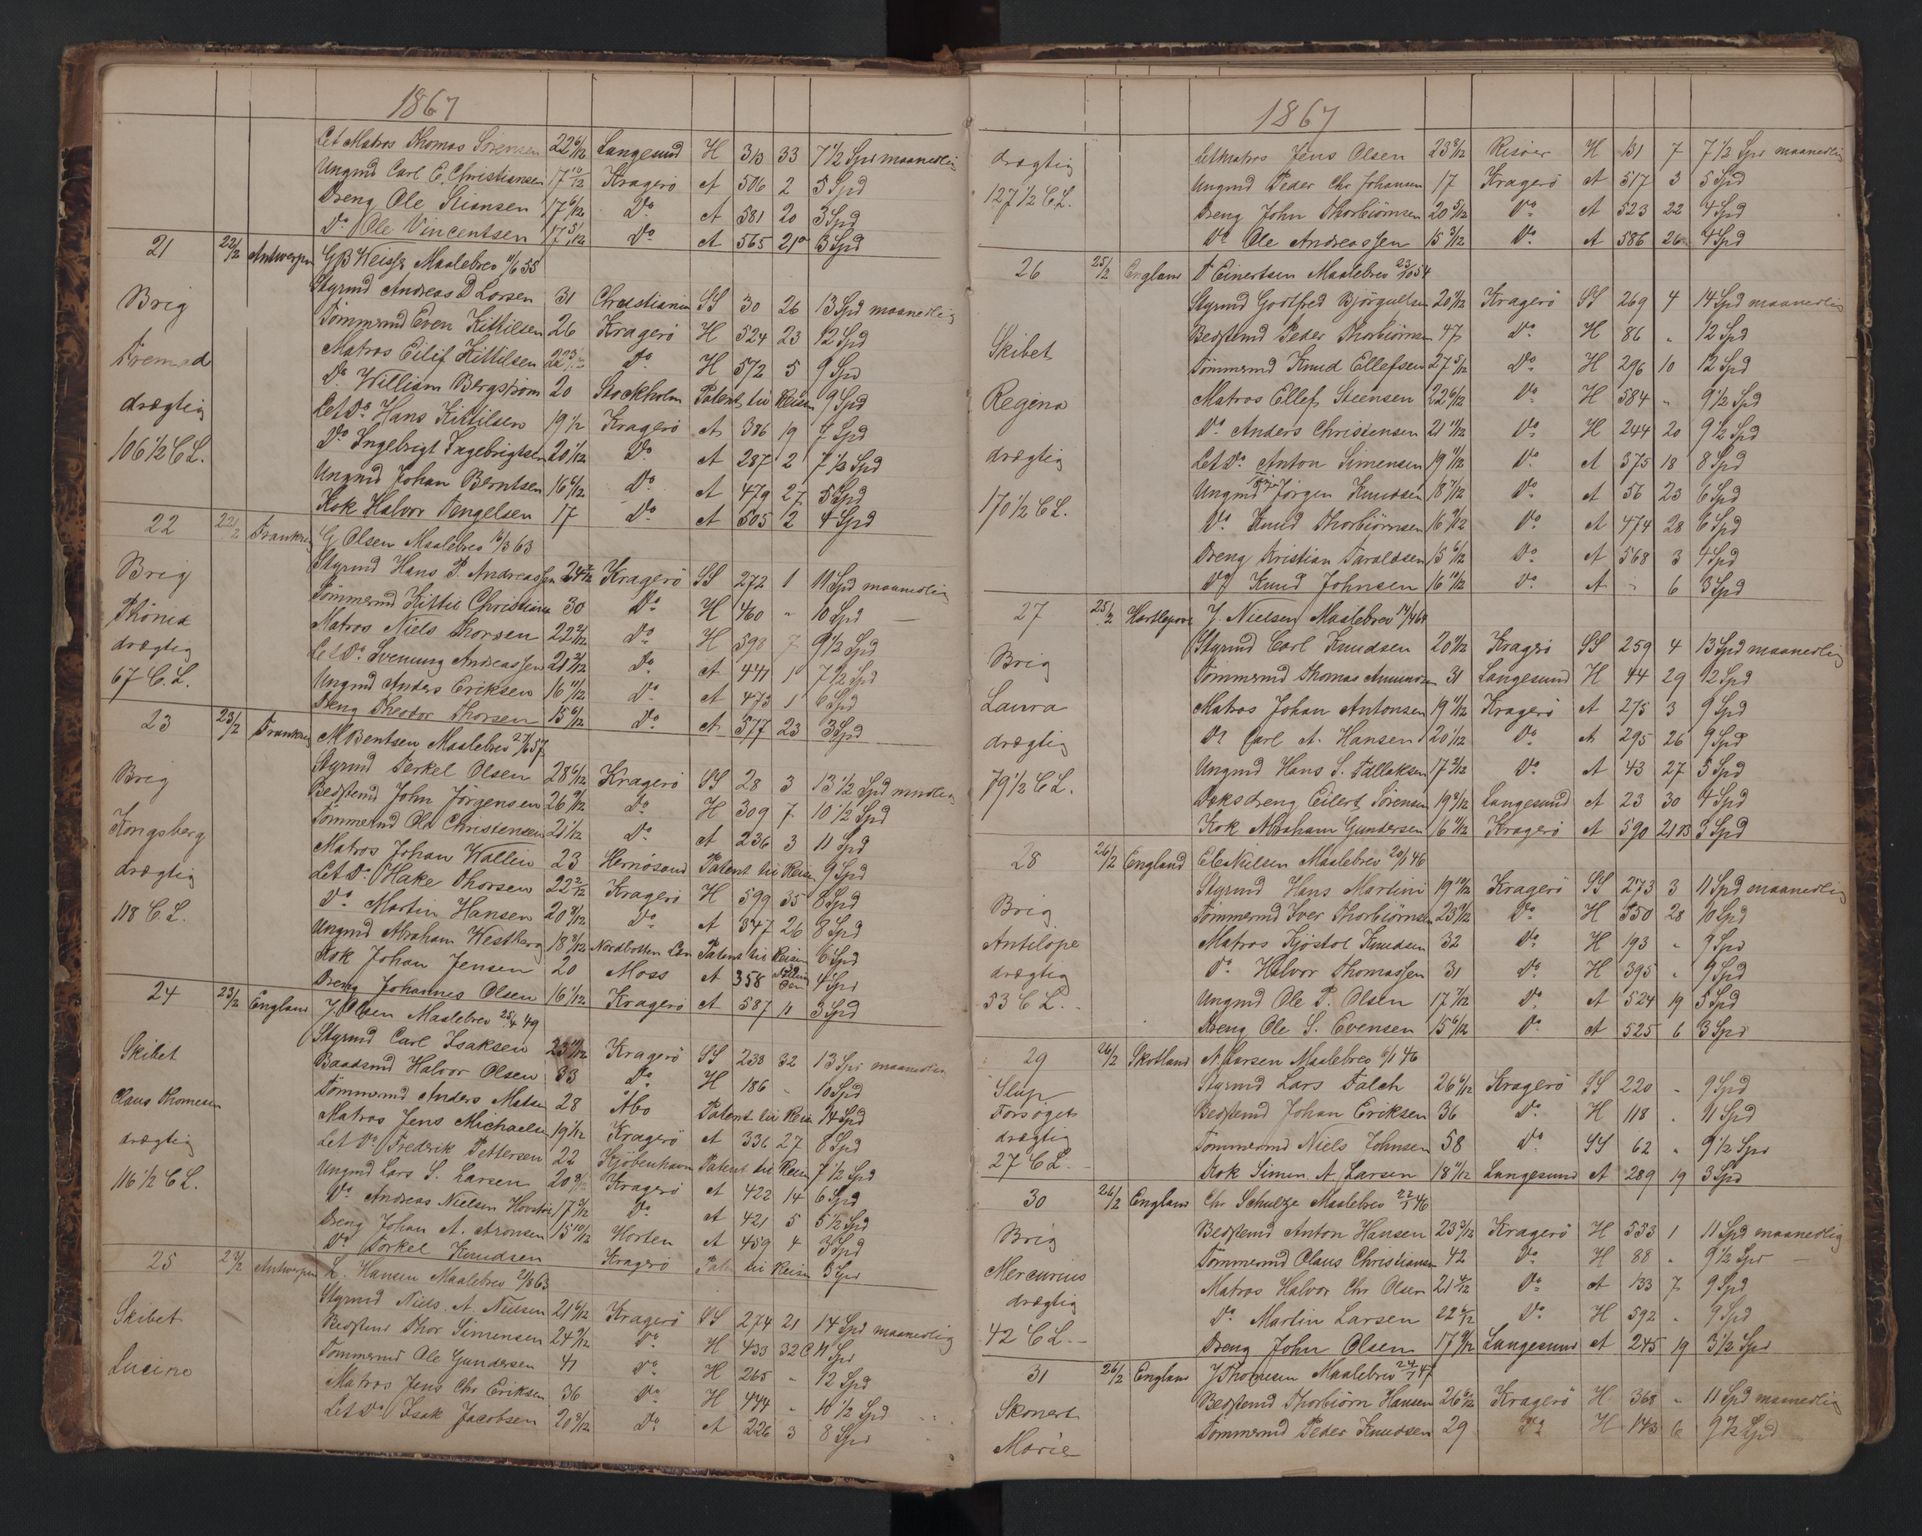 1867
Let Matros Thomas Sørensen 22 6/12 Langesund H 313 33 7 1/2 Spd maanedlig
Ungmd Carl E. Christiansen 17 10/12 Kragerø A 506 2 5 Spd
Dreng Ole Stiansen 17 6/12 Do A 581 20 3 Spd
Do Ole Vincentsen 17 5/12 Do A 565 21 3 Spd
21 22/2 Antwerpen Maalebrev 11/6 55
Styrmd Andreas D Larsen 31 Christiania SS 30 26 13 Spd maanedlig
Brig Tømmermd Even Kittilsen 26 Kragerø H 524 23 12 Spd
Matros Eilif Kittilsen Do H 572 5 9 Spd
Do William Bergstrøm 20 Stockholm Patent til Reisen 9 Spd
drægtig Let Do Hans Kittilsen 19 1/2 Kragerø A 386 19 7 Spd
Do Ingebrigt Ingebrigtsen 20 1/12 Do A 287 2 7 1/2 Spd
106 1/2 C.L. Ungmd Johan Berntsen 16 6/12 Do A 479 27 5 Spd
Kok Halvor Tengelsen 17 Do A 505 2 4 Spd
22 22/2 Frankrig G Olsen Maalebrev 16/3 63
Styrmd Hans P. Andreassen 24 Kragerø SS 272 1 11 Spd maanedlig
Brig Tømmermd Kittil Christians 30 Do H 460 " 10 Spd
Phønix Matros Niels Thorsen 22 Do H 598 7 9 1/2 Spd
drægtig Let Do Svenung Andreassen 21 Do A 441 1 7 1/2 Spd
67 C.L. Ungmd Anders Eriksen 16 11/12 Do A 473 1 6 Spd
Dreng Theodor Thorsen 15 6/12 Do A 577 23 3 Spd
23 23/2 Frankrig M Bentsen Maalebrev 57
Styrmd Terkel Olsen 28 6/12 Kragerø SS 28 3 13 1/2 Spd
Brig Bedstemd John Jørgensen 26 Do H 309 7 10 1/2 Spd
Kongsberg Tømmermd Ole Christensen 21 1/12 Do A 236 3 11 Spd
Matros Johan Wallin 23 Hernøsand Patent til Reisen 9 Spd
drægtig Let Do Hake Thorsen 22 2/12 Kragerø H 599 35 8 Spd
Do Martin Hansen 20 Do A 347 26 8 Spd
118 C.L. Ungmd Abraham Westberg 18 Nordbotten Län Patent til Reisen 6 Spd
Kok Johan Jensen 20 Moss A 358 4 Spd
Dreng Johannes Olsen 16 1/12 Kragerø A 587 11 3 Spd
24 23/2 England J Olsen Maalebrev 25/4 49
Styrmd Carl Isaksen 23 Kragerø SS 238 32 13 Spd maanedlig
Skibet Baadsmd Halvor Olsen 33 Do H 186 " 10 Spd
Claus Thomesen Tømmermd Anders Matsen 28 Åbo Patent til Reisen 14 Spd
Matros Jens Michaelsen 19 1/12 Kragerø A 336 27 8 Spd
drægtig Let Do Fredrik Pettersen 22 Kjøbenhavn Patent til Reisen 7 1/2 Spd
116 1/2 C.L. Ungmd Lars S. Larsen 20 Kragerø A 422 14 6 Spd
Do Andreas Nielsen 17 Do A 421 5 5 1/2 Spd
Dreng Johan A. 15 10/12 Horten A 459 4 3 Spd
Do Torkel Knudsen Kragerø Patent til Reisen 3 Spd
25 Antwerpen L. Hansen Maalebrev 63
Styrmd Niels A. Nielsen 21 Kragerø SS 274 21 14 Spd maanedlig
Skibet Bedstemd Thor Simensen 24 Do H 433 32 11 Spd
Lucino Tømmermd Ole Gundersen 41 Do H 265 " 12 Spd
Matros Jens Chr Eriksen 36 Do H 444 " 10 1/2 Spd
Let Do Isak Jacobsen 20 Do A 226 3 8 Spd
1867
drægtig Let Matros Jens Olsen 23 Risøer H 131 7 7 1/2 Spd maanedlig
Ungmd Peder Chr Johansen 17 Kragerø A 517 3 5 Spd
127 1/2 C.L. Dreng John Thorbiørnsen 20 5/12 Do A 523 22 4 Spd
Do Ole Andreassen 15 3/12 Do A 586 26 4 Spd
26 25/2 England Einertsen Maalebrev 54
Styrmd Gortfred Bjørgulfsen 20 Kragerø SS 269 4 14 Spd maanedlig
Skibet Bedstemd Peder Thorbiørnsen 47 Do H 86 " 12 Spd
Tømmermd Knud Ellefsen 27 5/12 Do H 296 10 12 Spd
Regena Matros Ellef Steensen 22 6/12 Do H 584 " 9 1/2 Spd
Do Anders Christensen 21 11/12 Do H 244 20 9 1/2 Spd
drægtig Let Do Anton Simensen 19 Do A 375 18 8 Spd
Ungmd Jørgen Knudsen 18 7/12 Do A 56 23 6 Spd
170 1/2 C.L. Do Knud Thorbiørnsen 16 Do A 474 28 6 Spd
Dreng Kristian Taraldsen 15 6/12 Do A 568 3 4 Spd
Do Knud Johnsen 16 10/12 Do A " 6 3 Spd
27 25/2 Hartlepool J. Nielsen Maalebrev 14/4 64
Styrmd Carl Knudsen 20 Kragerø SS 259 4 13 Spd maanedlig
Brig Tømmermd Thomas Amundsen 31 Langesund H 44 29 12 Spd
Laura Matros Johan Antonsen 19 Kragerø A 275 3 9 Spd
drægtig Do Carl A. Hansen 20 1/12 Do A 295 26 9 Spd
Ungmd Hans S. Tallaksen 17 Do A 43 27 5 Spd
79 1/2 C.L. Doksdreng Eilert Sørensen 19 Langesund A 23 30 4 Spd
Kok Abraham Gundersen 16 Kragerø A 590 21 3 Spd
28 26/2 England Maalebrev 20/1 46
Styrmd Hans Martini 19 10/12 Kragerø SS 273 3 11 Spd maanedlig
Brig Tømmermd Iver Thorbiørnsen 23 Do H 550 28 10 Spd
Antilope Matros Kjøstol Knudsen 32 Do H 193 " 9 Spd
drægtig Do Halvor Thomassen 31 Do H 395 " 9 Spd
53 C.L. Ungmd Ole P. Olsen 17 7/12 Do A 524 19 5 Spd
Dreng Ole S. Evensen 15 6/12 Do A 525 6 3 Spd
29 26/2 Skotland A Larsen Maalebrev 6/1 46
Slup Styrmd Lars Falch 26 6/12 Kragerø SS 220 " 9 Spd
Forsøget Bedstemd Johan Eriksen 36 Do H 118 " 11 Spd
drægtig Tømmermd Niels Johnsen 58 Do SS 62 " 9 1/2 Spd
27 C.L. Kok Simen A. Larsen 18 Langesund A 289 19 3 Spd
30 26/2 England Chr Schultze Maalebrev 22/1 46
Brig Bedstemd Anton Hansen 23 Kragerø H 553 1 11 Spd maanedlig
Tømmermd Claus Christiansen 42 Do H 88 " 9 1/2 Spd
Mercurius Matros Halvor Chr Olsen 21 Do A 133 7 9 Spd
drægtig Do Martin Larsen 22 Do H 592 " 9 Spd
42 C.L. Dreng John Olsen 17 Langesund A 245 19 3 1/2 Spd
31 26/2 England J Thomesen Maalebrev 24/7 47
Skonert Bedstemd Thorbiørn Hansen 26 6/12 Kragerø H 368 " 11 Spd maanedlig
Marie Tømmermd Peder Knudsen 29 Do H 143 6 9 1/2 Spd